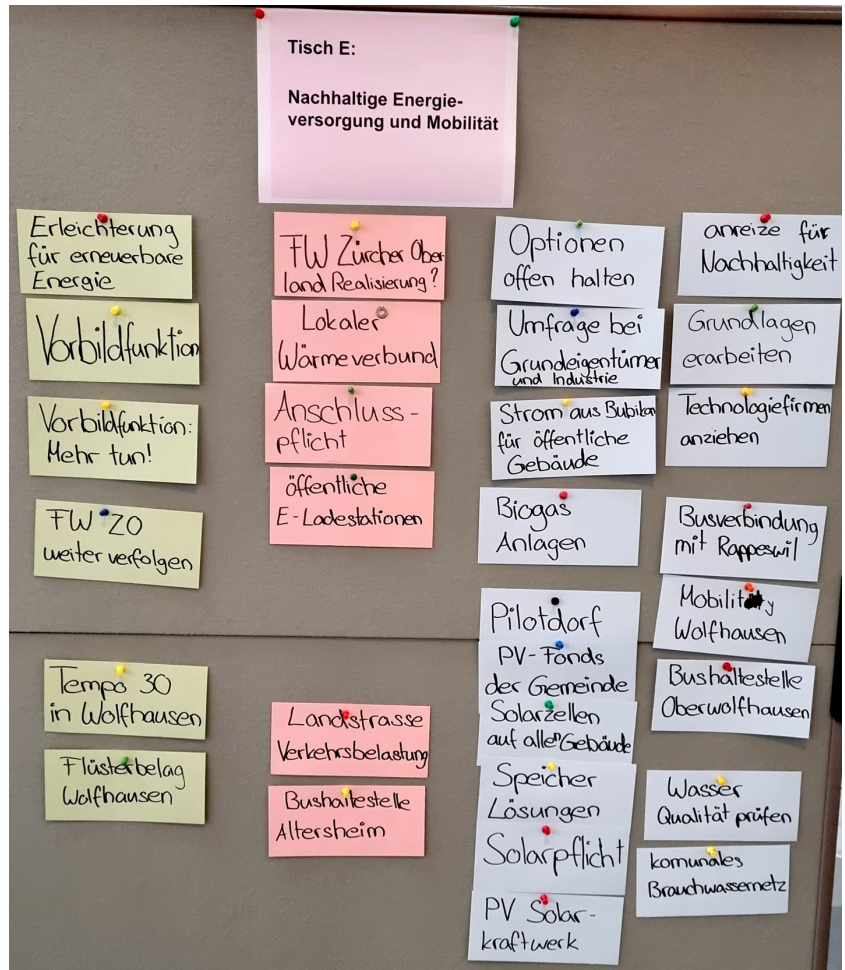 Tisch E:
Nachhaltige Energie-
versorgung und Mobilität
Erleichterung
für erneuerbare
Energie
Vorbildfunktion
Vorbildfunktion:
Mehr tun!
FW ZO
weiter verfolgen
Tempo 30
in Wolfhausen
Flüsterbelag
Wolfhausen
FW Zürcher Ober
land Realisierung?
Lokaler
Wärmeverbund
Anschluss-
pflicht
öffentliche
E-Ladestationen
Landstrasse
Verkehrsbelastung
Bushaltestelle
Altersheim
Optionen
offen halten
Umfrage bei
Grundeigentümer
und Industrie
Strom aus Bubikon
für öffentliche
Gebäude
Biogas
Anlagen
Pilotdorf
PV-Fonds
der Gemeinde
Solarzellen
auf allen Gebäude
Speicher
Lösungen
Solarpflicht
PV Solar-
kraftwerk
anreize für
Nachhaltigkeit
Grundlagen
erarbeiten
Technologiefirmen
anziehen
Busverbindung
mit Rapperswil
Mobility
Wolfhausen
Bushaltestelle
Oberwolfhausen
Wasser
Qualität prüfen
komunales
Brauchwassernetz